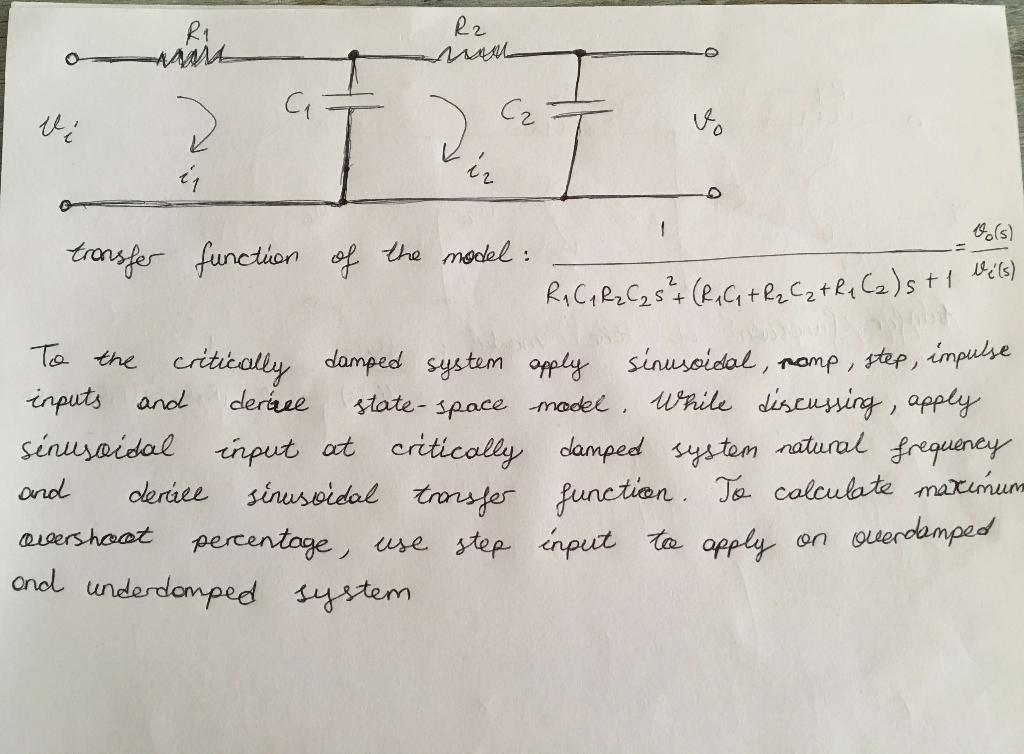 R1 R2
C1 C2
vi vo
i1 i2
transfer function of the model : 1 / R1C1R2C2s²+(R1C1+R2C2+R1C2)s+1 = vo(s)/vi(s)
To the critically damped system apply sinusoidal, ramp, step, impulse
inputs and derive state-space model. While discussing, apply
sinusoidal input at critically damped system natural frequency
and derive sinusoidal transfer function. To calculate maximum
overshoot percentage, use step input to apply on overdamped
and underdamped system